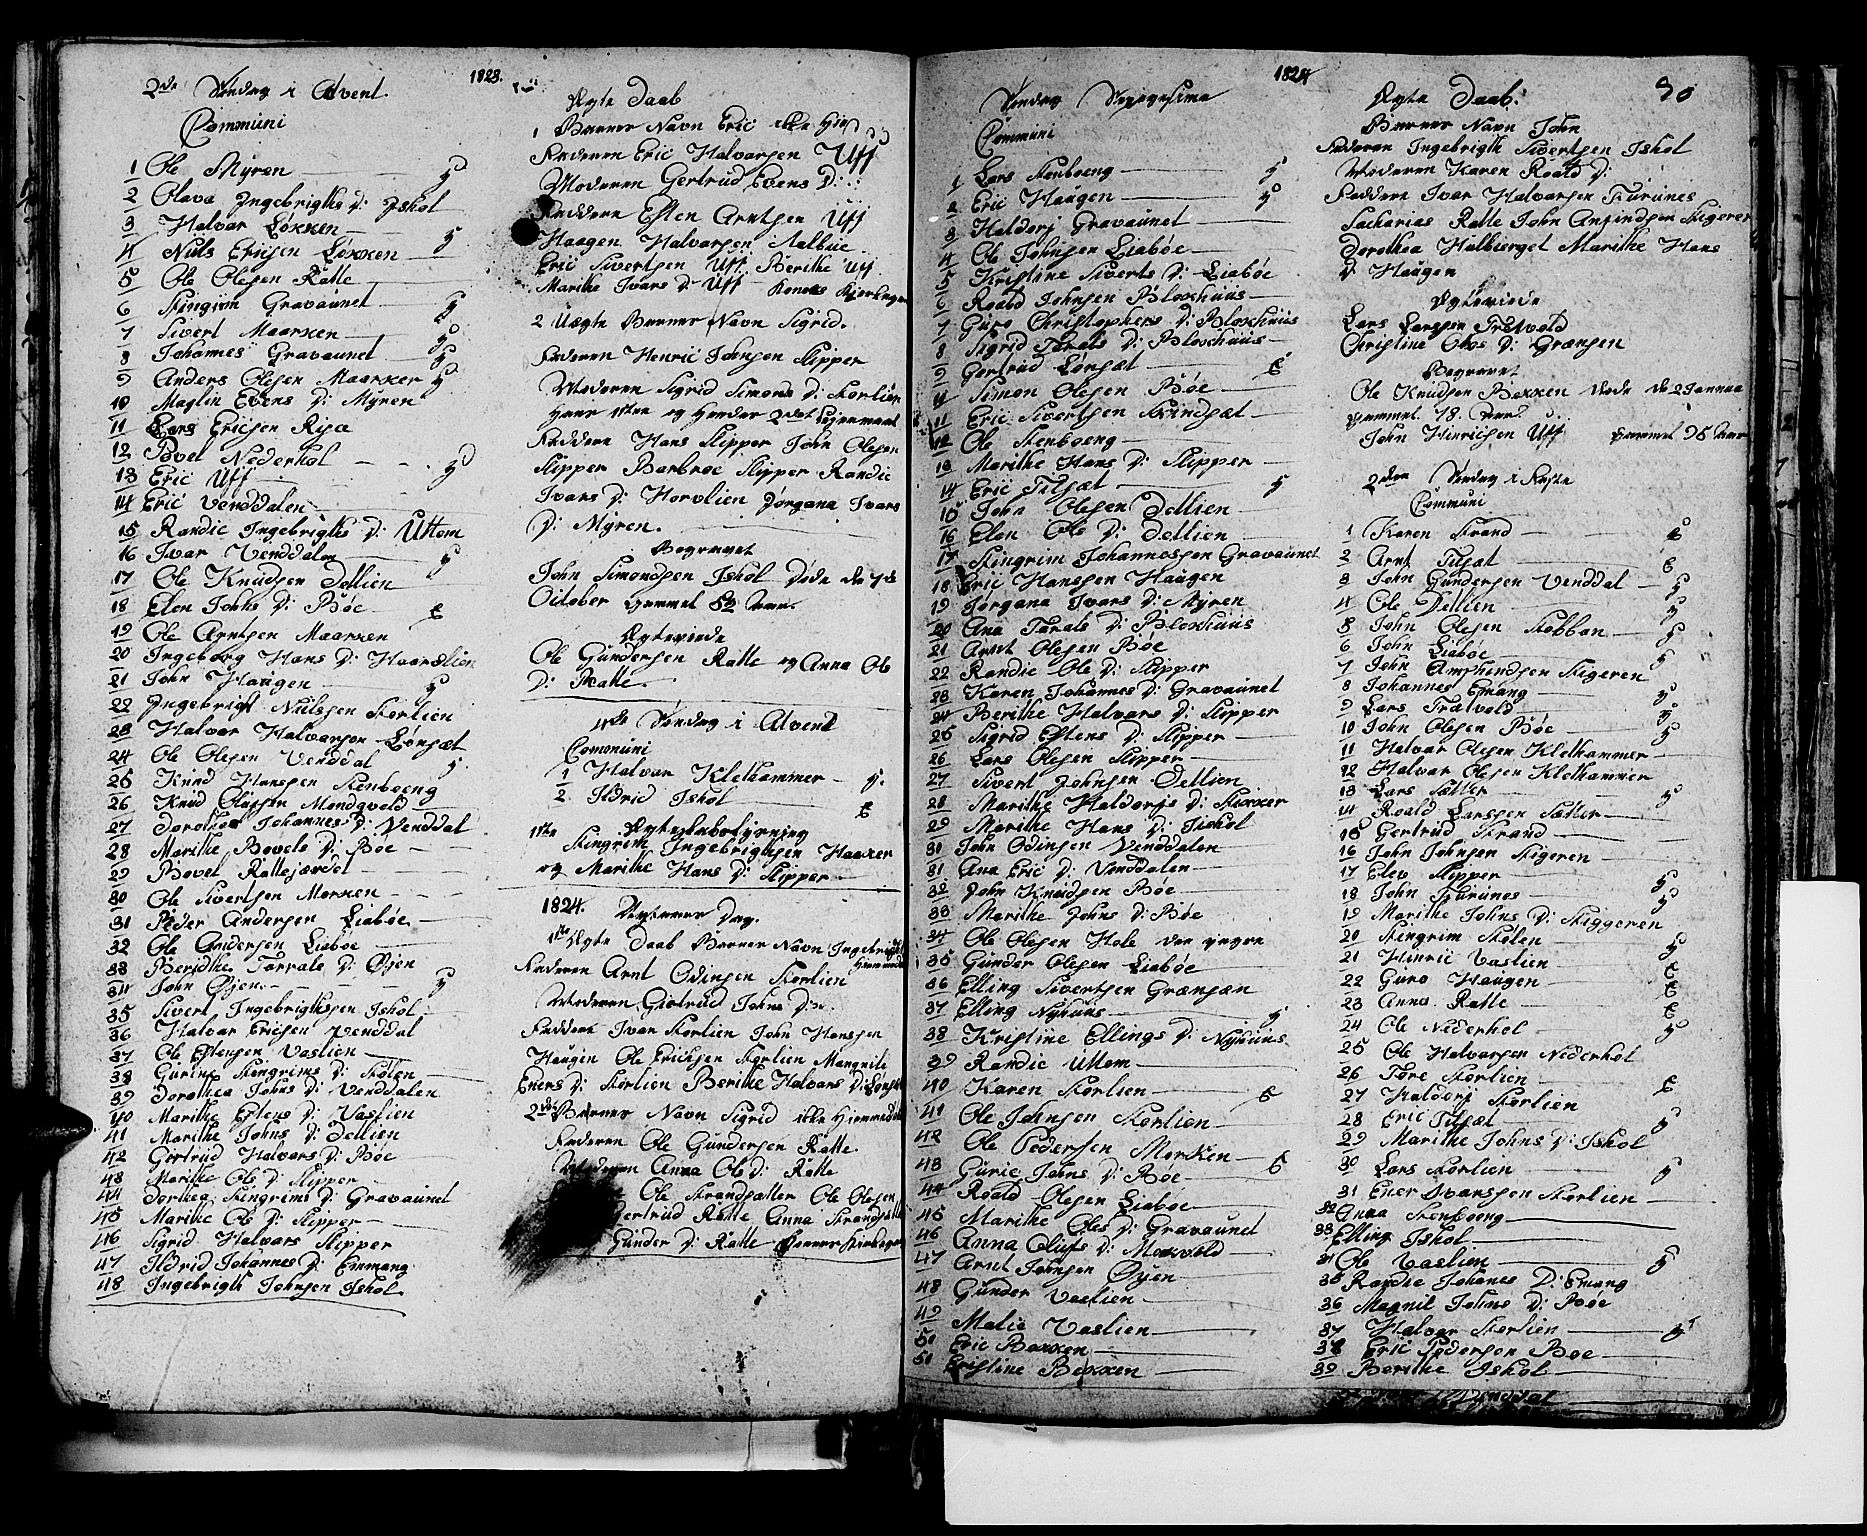 1823.
2de Søndag i Advent.
Communi
1 Ole Myren
2 Olava Ingebrigths D: Ishol
3 Halvor Løkken
4 Niels Ericsen Løkken
5 Ole Olesen Ratte
6 Stingrim Gravaunet
7 Sivert Maarken
8 Johannes Gravaunet
9 Anders Olesen Maarken
10 Maglin Evens D: Myren
11 Lars Ericsen Risa
12 Povel Nederhol
13 Eric Uff
14 Eric Venddalen
15 Randie Ingebrigths D: Uttem
16 Ivar Venddalen
17 Ole Knudsen Dellien
18 Elen Johns D: Bøe
19 Ole Arntsen Maarken
20 Ingeborg Hans D: Haarstlien
21 John Haugen
22 Ingebrigt Nielsen Storlien
23 Halvar Halvarsen Lønsæt
24 Ole Olesen Venddal
25 Knud Hansen Stenboeng
26 Knud Olufsen Mondgvold
27 Dorothea Johannes D: Venddal
28 Marithe Povels D: Bøe
29 Povel Rattejærdet
30 Ole Sivertsen Morken
31 Peder Andersen Liabøe
32 Ole Andersen Liabøe
33 Berithe Torrals D: Øjen
34 John Øjen
35 Sivert Ingebrigthsen Ishol
36 Halvar Ericsen Venddal
37 Ole Estensen Vaslien
38 Gurine Stingrims D: Stølen
39 Dorothea Johns D: Venddalen
40 Marithe Estens D: Vaslien
41 Marithe Johns D: Dellien
42 Gertrud Halvars D: Bøe
43 Marithe Ols D: Slipper
44 Dorthea Stingrims D: Gravaunet
45 Marithe Ols D: Slipper
46 Sigrid Halvars Slipper
47 Ildrid Johannes D: Emmang
48 Ingebrigth Johnsen Ishol
Ægte Daab
1 Barnets Navn Eric ikke Hiem
Faderen Eric Halvarsen Uff
Moderen Gertrud Evens D:
Faddere Esten Arntsen Uff
Haagen Halvarsen Aalbue
Eric Sivertsen Uff Berithe Uff
Marithe Ivars D: Uff
2 Uægte Barnets Navn Sigrid.
Faderen Henric Johnsen Slipper
Moderen Sigrid Simons D: Storlien
Hans 1ste og Hendes 2det Leiermaal
Faddere Hans Slipper John Olesen
Slipper Barbroe Slipper Randie
Ivars D: Horvlien Jørgana Ivars
D: Myren.
Begravet
John Simondsen Ishol Døde de 7de
October gammel 82 Aar.
Ægteviede
Ole Gundersen Ratte og Anna Ols
D: Ratte.
4de Søndag i Advent
Communi
1 Halvar Klethammer
2 Ildrid Ishol
1ste Ægteskabslysning
Stingrim Ingebrigthsen Haarker
og Marithe Hans D: Slipper
1824. Nytaars Dag.
1ste Ægte Daab Barnets Navn Ingebrigt
Hiemmedt
Faderen Arnt Odinsen Storlien
Moderen Gertrud Johns D:
Faddere Ivar Storlien John Hansen
Haugen Ole Ericksen Storlien Mangnild
Eners D: Storlien Berithe Halvars D: Lønset
2det Barnets Navn Sigrid ikke Hiemmedt
Faderen Ole Gundersen Ratte
Moderen Anna Ols D: Ratte
Ole Strandsætter Ole Olesen
Gertrud Ratte Anna Strandsætt
Gunder D: Ratte
1824
Søndag Sexagesima
Communi
1 Lars Stenboeng
2 Eric Haugen
3 Haldorj Gravaunet
4 Ole Johnsen Liabøe
5 Kristine Siverts D: Liabøe
6 Roald Johnsen Bloxhuus
7 Guro Christophers D: Bloxhuus
8 Sigrid Torals D: Bloxhuus
9 Gertrud Lønsæt
Simon Olesen Bøe
11 Eric Sivertsen Svindsæt
12 Ole Stenboeng
13 Marithe Hans D: Slipper
14 Eric Tilset
15 John Olesen Dellien
16 Elen Ols D: Dellien
17 Stingrim Johannessen Gravaunet
18 Eric Hansen Haugen
19 Jørgana Ivars D: Myren
20 Ana Torals D: Bloxhuus
21 Arnt Olesen Bøe
22 Randie Ole D: Slipper
23 Karen Johannes D: Gravaunet
24 Berithe Halvars D: Slipper
25 Sigrid Estens D: Slipper
26 Lars Olesen Slipper
27 Sivert Johnsen Dellien
28 Marithe Haldorjs D: Stukker
29 Marithe Hans D: Ishol
John Odinsen Venddalen
31 Ana Eric D: Venddalen
32 John Knudsen Bøe
33 Marithe Johns D: Bøe
34 Ole Olesen Hole den yngre
35 Gunder Olesen Liabøe
36 Elling Sivertsen Grænsen
37 Elling Nyhuus
38 Kristine Ellings D: Nyhuus
39 Randie Uttem
40 Karen Storlien
41 Ole Johnsen Storlien
42 Ole Pedersen Morken
43 Gurie Johns D: Bøe
44 Roald Olesen Liabøe
45 Marithe Oles D: Gravaunet
46 Anna Olufs D: Moxvold
47 Arnt Johnsen Øyen
48 Gunder Vaslien
49 Malie Vaslien
50 Eric Bakken
Cristine Bekken
90
Ægte Daab.
Barnets Navn John
Faderen Ingebrigth Sivertsen Ishol
Moderen Karen Roald D:
Faddere Ivar Halvarsen Furunes
Sacharias Ratte John Amfindsen Stigeren
Dorothea Halbierget Marithe Hans
D: Haugen
Ægteviede
Lars Larsen Trætvold
Christine Ols D: Grænsen
Begravet
Ole Knudsen Bekken døde de 2 Janua
gammel 78 Aar
John Hinrichsen Uff gammel 95 Aar
2den Søndag i Faste
Communi
1 Karen Strand
2 Arnt Tilset
3 John Gundersen Venddal
4 Ole Dellien
5 John Olesen Stobban
6 John Liabøe
7 John Amphindsen Stigeren
8 Johannes Emang
9 Lars Trætvold
10 John Olesen Bøe
11 Halvar Olesen Klethammer
12 Halvar Olesen Klethammer
13 Lars Sætter
14 Roald Larsen Sætter
15 Gertrud Strand
16 John Johnsen Stigeren
17 Elev Slipper
18 John Furunes
19 Marithe Johns D: Stiggeren
20 Stingrim Stølen
21 Hinric Vaslien
22 Guro Haugen
23 Anna Ratte
24 Ole Nederhol
25 Ole Halvarsen Nederhol
26 Tore Storlien
27 Haldorj Storlien
28 Eric Tilsæt
29 Marithe Johns D: Ishol
30 Lars Storlien
31 Ener Ivarsen Storlien
32 Anna Stenboeng
33 Elling Ishol
34 Ole Vaslien
35 Randie Johanes D: Emang
36 Magnil Johns D: Bøe
37 Halvar Storlien
38 Eric Pedersen Bøe
39 Berithe Ishol
Venddal